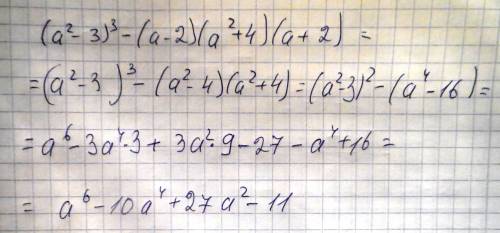 (a²-3)³-(a-2)(a²+4)(a+2) =
=(a²-3)³-(a²-4)(a²+4)=(a²-3)²-(a⁴-16)=
=a⁶-3a⁴·3+3a²·9-27-a⁴+16=
= a⁶-10a⁴+27a²-11